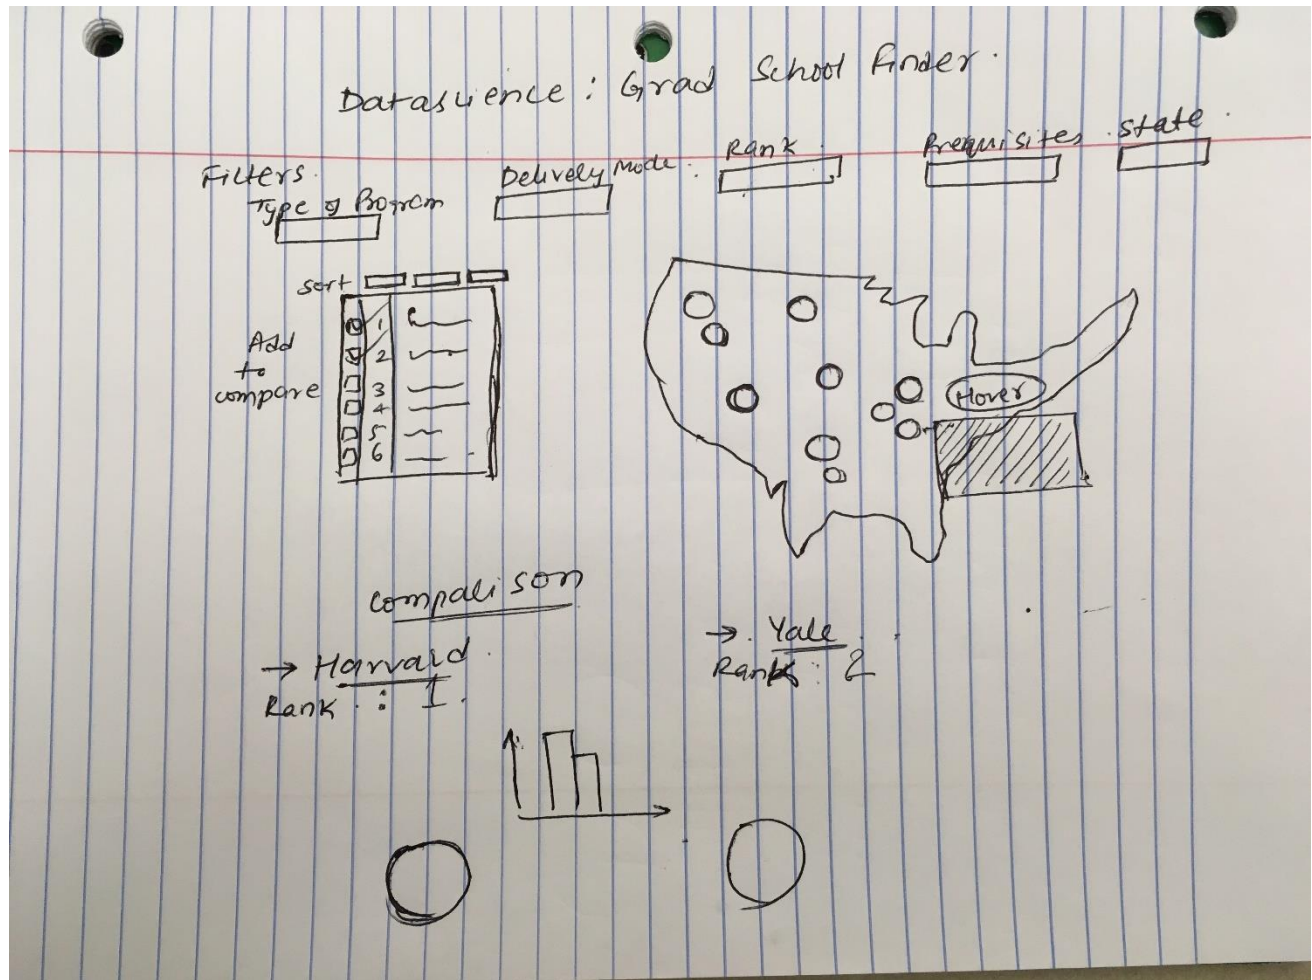 Datascience : Grad School Finder.
Filters.
Type of Program
Delivery Mode:
Rank
Prerequisites
State
Sort
Add to compare
1
2
3
4
5
6
Hover
Comparison
→ Harvard
Rank : 1.
→ Yale
Rank : 2